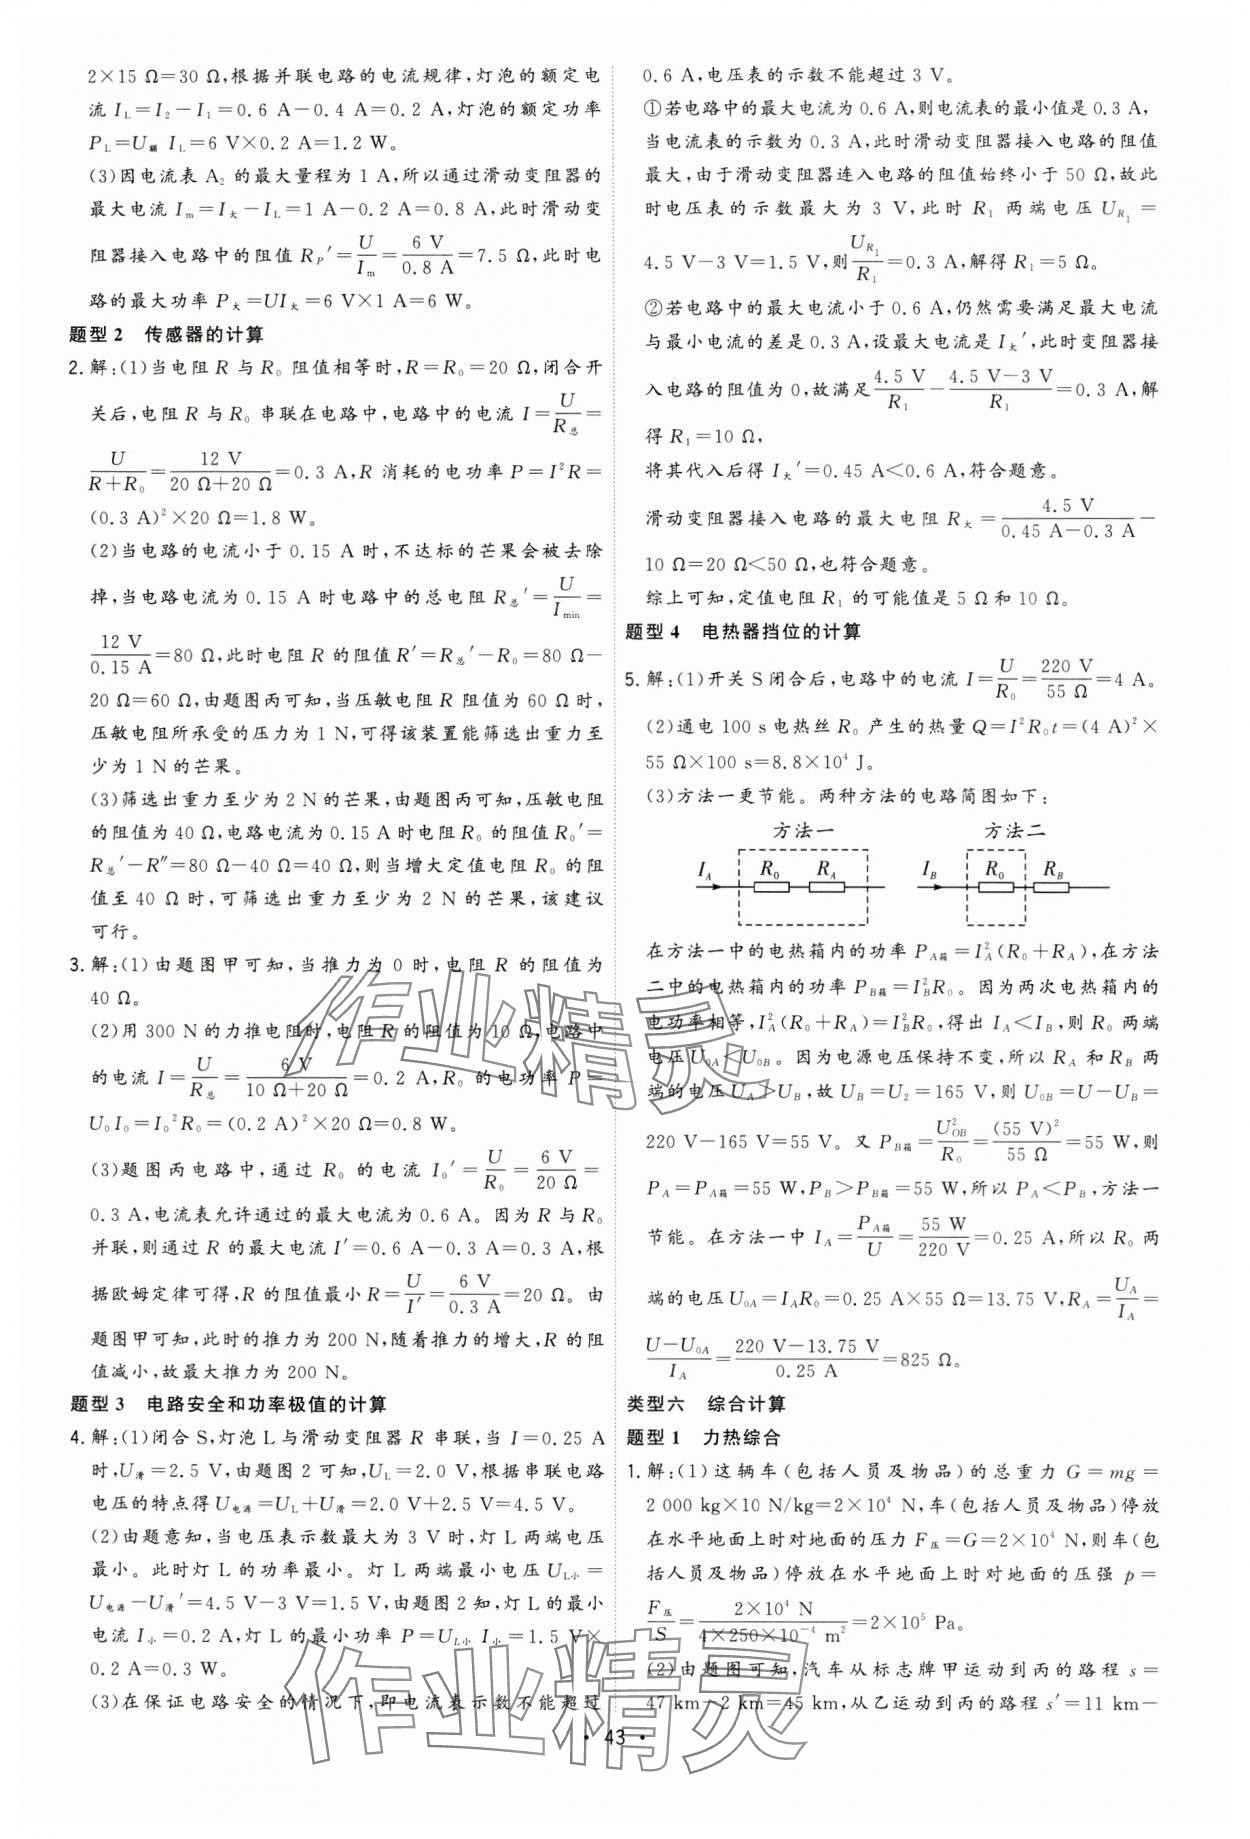 2×15 Ω=30 Ω,根据并联电路的电流规律,灯泡的额定电
流 I_L=I₂－I₁=0.6 A－0.4 A=0.2 A,灯泡的额定功率
P_L=U_额 I_L=6 V×0.2 A=1.2 W。
(3)因电流表 A₂ 的最大量程为 1 A,所以通过滑动变阻器的
最大电流 I_m=I_大－I_L=1 A－0.2 A=0.8 A,此时滑动变
阻器接入电路中的阻值 R_P′=U/I_m=6 V/0.8 A=7.5 Ω,此时电
路的最大功率 P_大=UI_大=6 V×1 A=6 W。
题型 2 传感器的计算
2. 解:(1)当电阻 R 与 R₀ 阻值相等时,R=R₀=20 Ω,闭合开
关后,电阻 R 与 R₀ 串联在电路中,电路中的电流 I=U/R_总=
U/(R+R₀)=12 V/(20 Ω+20 Ω)=0.3 A,R 消耗的电功率 P=I²R=
(0.3 A)²×20 Ω=1.8 W。
(2)当电路的电流小于 0.15 A 时,不达标的芒果会被去除
掉,当电路电流为 0.15 A 时电路中的总电阻 R_总′=U/I_min=
12 V/0.15 A=80 Ω,此时电阻 R 的阻值 R′=R_总′－R₀=80 Ω－
20 Ω=60 Ω,由题图丙可知,当压敏电阻 R 阻值为 60 Ω 时,
压敏电阻所承受的压力为 1 N,可得该装置能筛选出重力至
少为 1 N 的芒果。
(3)筛选出重力至少为 2 N 的芒果,由题图丙可知,压敏电阻
的阻值为 40 Ω,电路电流为 0.15 A 时电阻 R₀ 的阻值 R₀′=
R_总′－R″=80 Ω－40 Ω=40 Ω,则当增大定值电阻 R₀ 的阻
值至 40 Ω 时,可筛选出重力至少为 2 N 的芒果,该建议
可行。
3. 解:(1)由题图甲可知,当推力为 0 时,电阻 R 的阻值为
40 Ω。
(2)用 300 N 的力推电阻时,电阻 R 的阻值为 10 Ω,电路中
的电流 I=U/R_总=6 V/(10 Ω+20 Ω)=0.2 A,R₀ 的电功率 P=
U₀I₀=I₀²R₀=(0.2 A)²×20 Ω=0.8 W。
(3)题图丙电路中,通过 R₀ 的电流 I₀′=U/R₀=6 V/20 Ω=
0.3 A,电流表允许通过的最大电流为 0.6 A。因为 R 与 R₀
并联,则通过 R 的最大电流 I′=0.6 A－0.3 A=0.3 A,根
据欧姆定律可得,R 的阻值最小 R=U/I′=6 V/0.3 A=20 Ω。由
题图甲可知,此时的推力为 200 N,随着推力的增大,R 的阻
值减小,故最大推力为 200 N。
题型 3 电路安全和功率极值的计算
4. 解:(1)闭合 S,灯泡 L 与滑动变阻器 R 串联,当 I=0.25 A
时,U_滑=2.5 V,由题图 2 可知,U_L=2.0 V,根据串联电路
电压的特点得 U_电源=U_L+U_滑=2.0 V+2.5 V=4.5 V。
(2)由题意知,当电压表示数最大为 3 V 时,灯 L 两端电压
最小。此时灯 L 的功率最小。灯 L 两端最小电压 U_L小=
U_电源－U_滑′=4.5 V－3 V=1.5 V,由题图 2 知,灯 L 的最小
电流 I_小=0.2 A,灯 L 的最小功率 P=U_L小 I_小=1.5 V×
0.2 A=0.3 W。
(3)在保证电路安全的情况下,即电流表示数不能超过
0.6 A,电压表的示数不能超过 3 V。
①若电路中的最大电流为 0.6 A,则电流表的最小值是 0.3 A,
当电流表的示数为 0.3 A,此时滑动变阻器接入电路的阻值
最大,由于滑动变阻器连入电路的阻值始终小于 50 Ω,故此
时电压表的示数最大为 3 V,此时 R₁ 两端电压 U_R₁=
4.5 V－3 V=1.5 V,则U_R₁/R₁=0.3 A,解得 R₁=5 Ω。
②若电路中的最大电流小于 0.6 A,仍然需要满足最大电流
与最小电流的差是 0.3 A,设最大电流是 I_大′,此时变阻器接
入电路的阻值为 0,故满足4.5 V/R₁－(4.5 V－3 V)/R₁=0.3 A,解
得 R₁=10 Ω,
将其代入后得 I_大′=0.45 A<0.6 A,符合题意。
滑动变阻器接入电路的最大电阻 R_大=4.5 V/(0.45 A－0.3 A)－
10 Ω=20 Ω<50 Ω,也符合题意。
综上可知,定值电阻 R₁ 的可能值是 5 Ω 和 10 Ω。
题型 4 电热器挡位的计算
5. 解:(1)开关 S 闭合后,电路中的电流 I=U/R₀=220 V/55 Ω=4 A。
(2)通电 100 s 电热丝 R₀ 产生的热量 Q=I²R₀t=(4 A)²×
55 Ω×100 s=8.8×10⁴ J。
(3)方法一更节能。两种方法的电路简图如下:
方法一 方法二
I_A R₀ R_A I_B R₀ R_B
在方法一中的电热箱内的功率 P_A箱=I_A²(R₀+R_A),在方法
二中的电热箱内的功率 P_B箱=I_B²R₀。因为两次电热箱内的
电功率相等,I_A²(R₀+R_A)=I_B²R₀,得出 I_A<I_B,则 R₀ 两端
电压 U₀A<U₀B。因为电源电压保持不变,所以 R_A 和 R_B 两
端的电压 U_A>U_B,故 U_B=U₂=165 V,则 U₀B=U－U_B=
220 V－165 V=55 V。又 P_B箱=U_OB²/R₀=(55 V)²/55 Ω=55 W,则
P_A=P_A箱=55 W,P_B>P_B箱=55 W,所以 P_A<P_B,方法一
节能。在方法一中 I_A=P_A箱/U=55 W/220 V=0.25 A,所以 R₀ 两
端的电压 U₀A=I_AR₀=0.25 A×55 Ω=13.75 V,R_A=U_A/I_A=
(U－U₀A)/I_A=(220 V－13.75 V)/0.25 A=825 Ω。
类型六 综合计算
题型 1 力热综合
1. 解:(1)这辆车(包括人员及物品)的总重力 G=mg=
2 000 kg×10 N/kg=2×10⁴ N,车(包括人员及物品)停放
在水平地面上时对地面的压力 F_压=G=2×10⁴ N,则车(包
括人员及物品)停放在水平地面上时对地面的压强 p=
F_压/S=2×10⁴ N/(4×250×10⁻⁴ m²)=2×10⁵ Pa。
(2)由题图可知,汽车从标志牌甲运动到丙的路程 s=
47 km－2 km=45 km,从乙运动到丙的路程 s′=11 km－
· 43 ·
作业精灵
作业精灵